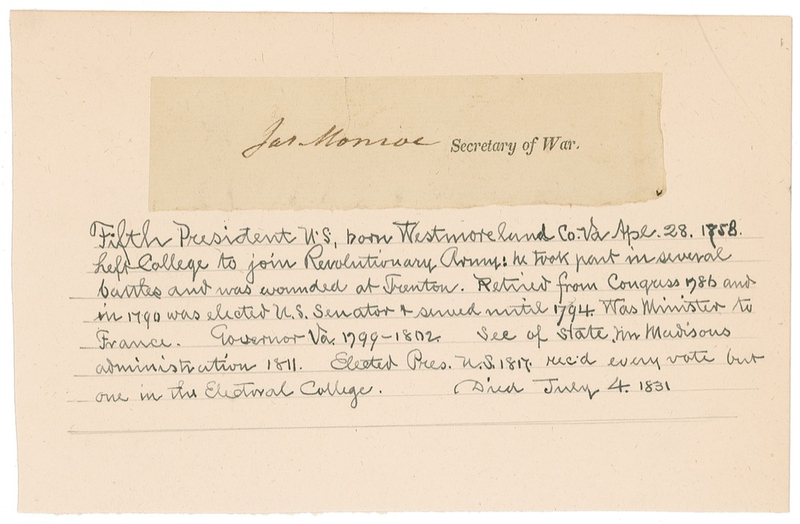 Jas Monroe Secretary of War.
Fifth President U.S, born Westmoreland Co. Va Apl. 28. 1758.
Left College to join Revolutionary Army: he took part in several
battles and was wounded at Trenton. Retired from Congress 1786 and
in 1790 was elected U.S. Senator & served until 1794. Was Minister to
France. Governor Va. 1799-1802. Sec of State in Madisons
administration 1811. Elected Pres. U.S. 1817. rec'd every vote but
one in the Electoral College. Died July 4. 1831